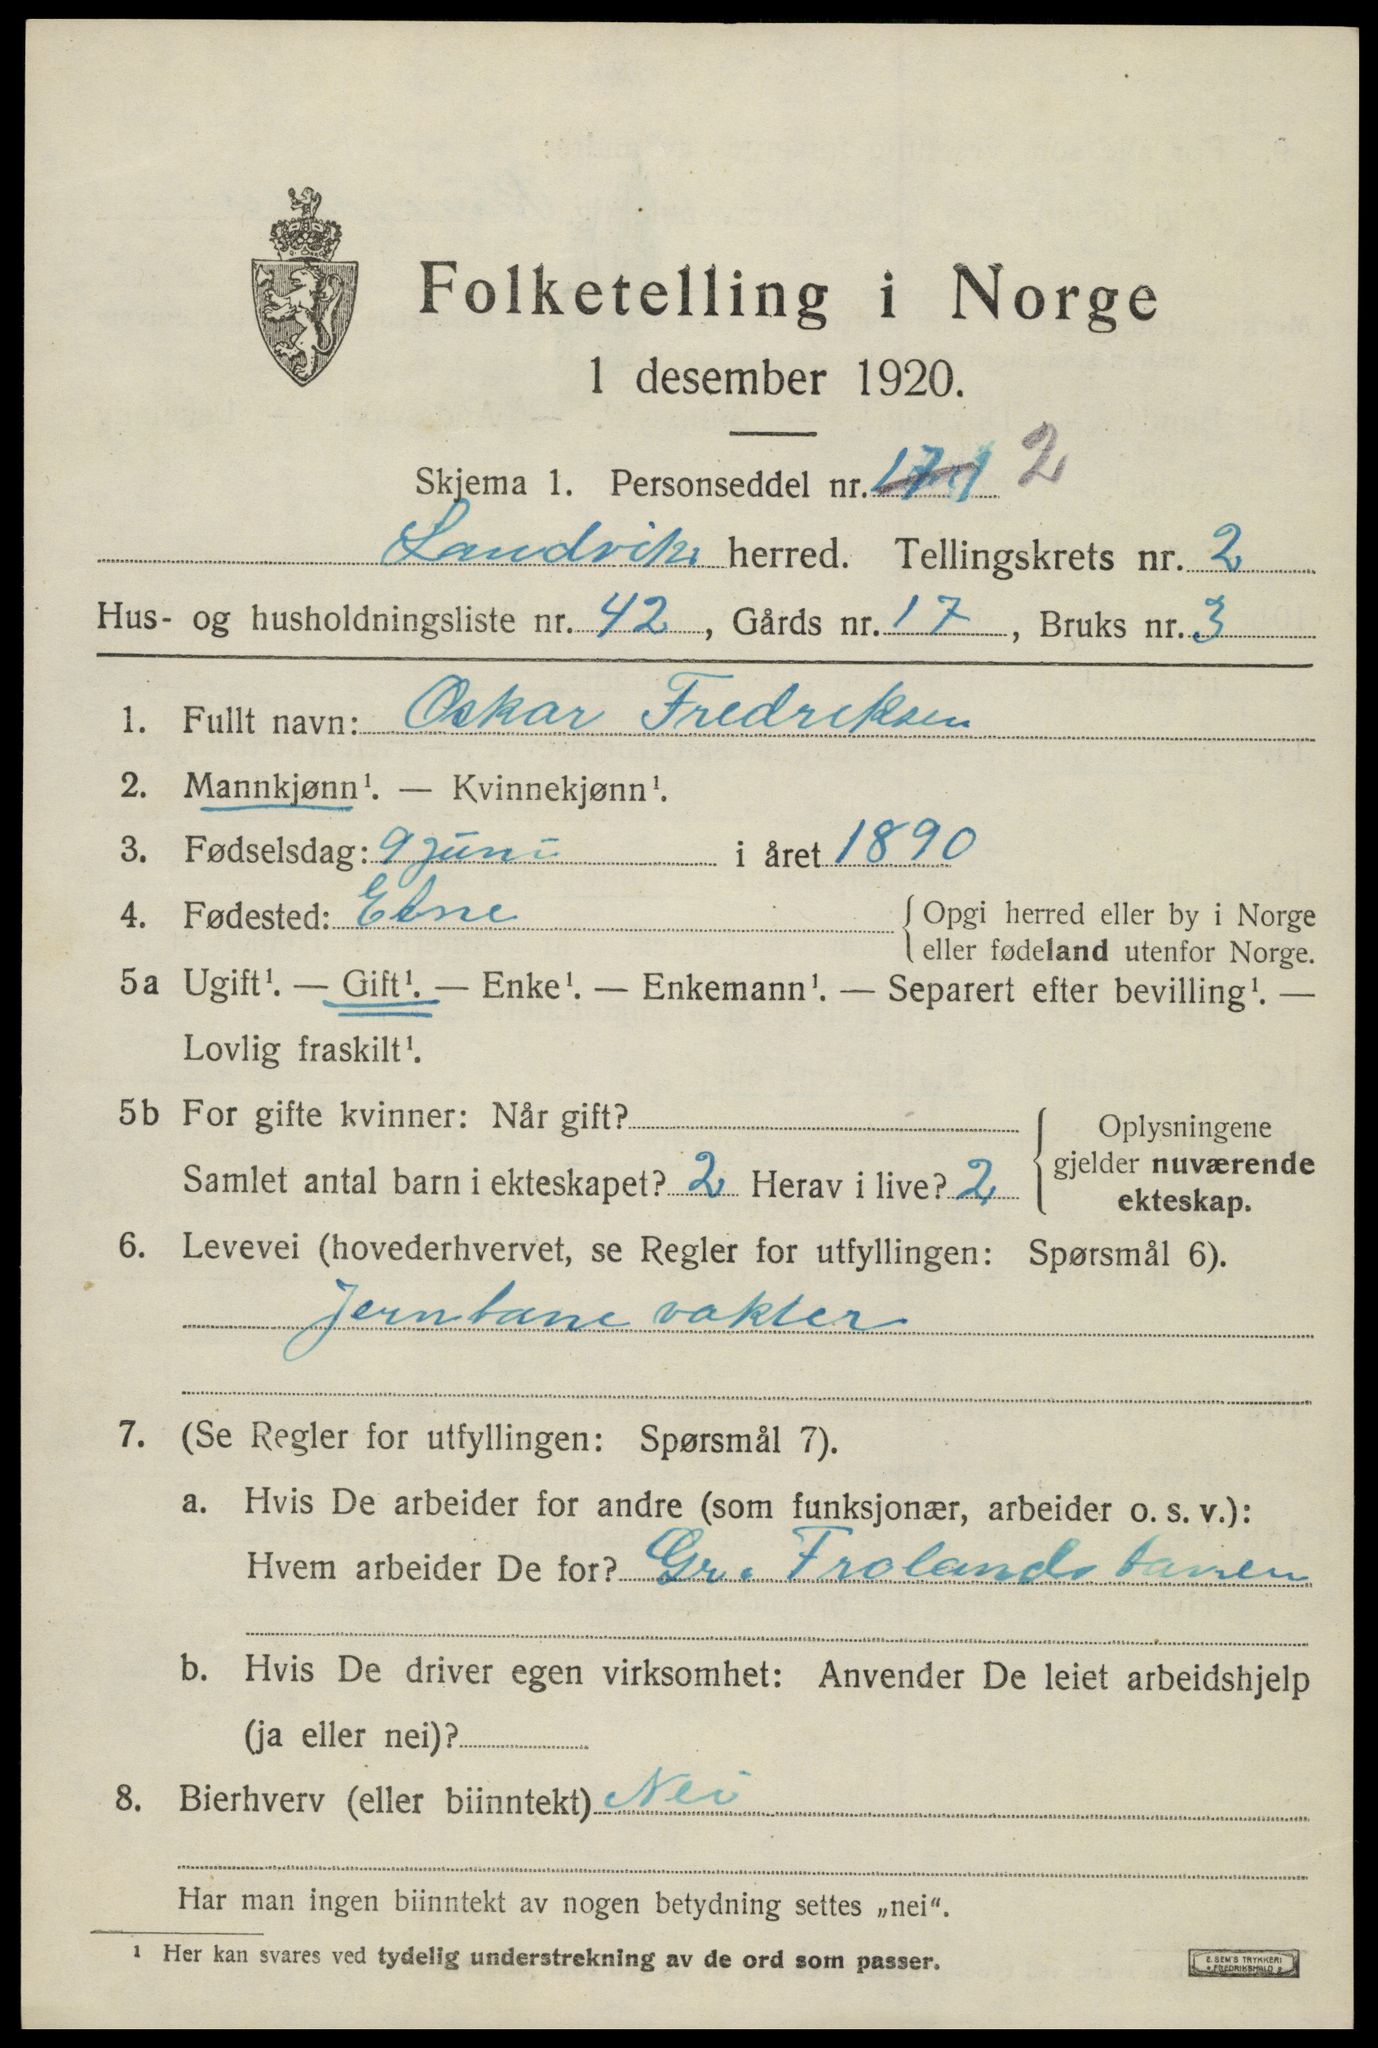 Folketelling i Norge
1 desember 1920.
Skjema 1. Personseddel nr. 2
Landvik herred. Tellingskrets nr. 2
Hus- og husholdningsliste nr. 42, Gårds nr. 17, Bruks nr. 3
1. Fullt navn: Oskar Fredriksen
2. Mannkjønn¹. — Kvinnekjønn¹.
3. Fødselsdag: 9 juni i året 1890
4. Fødested: Etne {Opgi herred eller by i Norge
eller fødeland utenfor Norge.
5a Ugift¹. — Gift¹. — Enke¹. — Enkemann¹. — Separert efter bevilling¹. —
Lovlig fraskilt¹.
5b For gifte kvinner: Når gift?
Samlet antal barn i ekteskapet? 2 Herav i live? 2
Oplysningene
gjelder nuværende
ekteskap.
6. Levevei (hovederhvervet, se Regler for utfyllingen: Spørsmål 6).
Jernbane vakter
7. (Se Regler for utfyllingen: Spørsmål 7).
a. Hvis De arbeider for andre (som funksjonær, arbeider o. s. v.):
Hvem arbeider De for? Gr. Frolands banen
b. Hvis De driver egen virksomhet: Anvender De leiet arbeidshjelp
(ja eller nei)?
8. Bierhverv (eller biinntekt) Nei
Har man ingen biinntekt av nogen betydning settes „nei“.
¹ Her kan svares ved tydelig understrekning av de ord som passer.
E. SEM'S TRYKKERI
FREDRIKSHALD